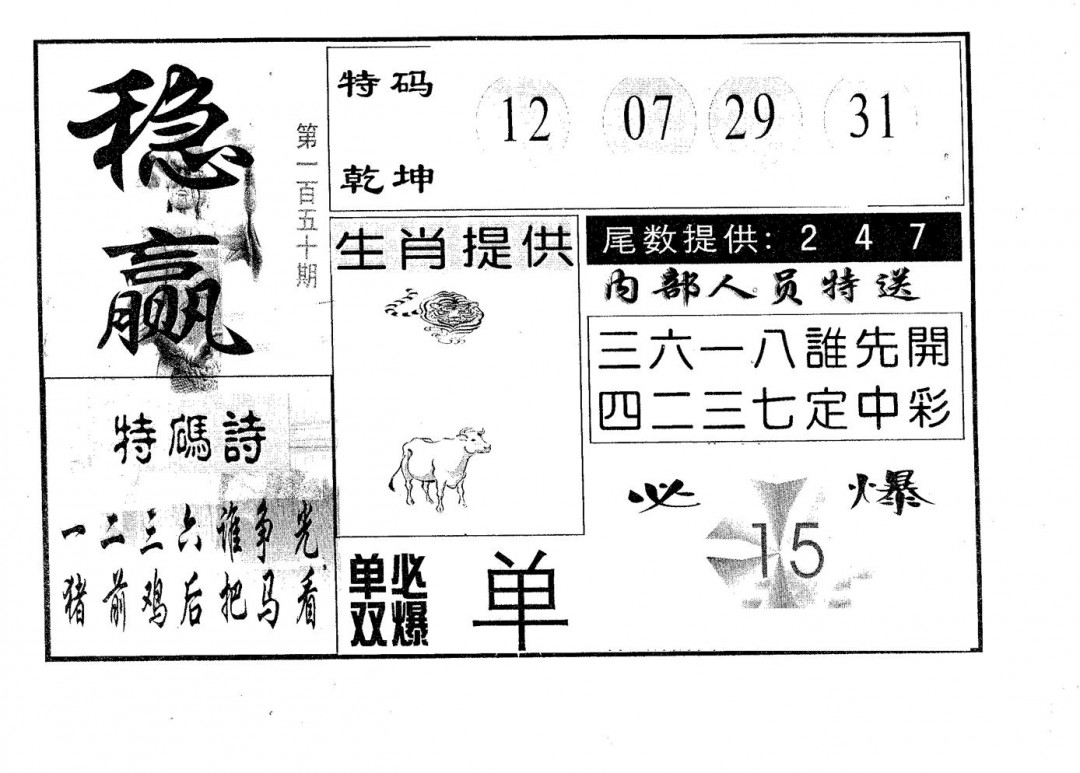 稳赢
第一百五十期
特码
乾坤
12 07 29 31
生肖提供
尾数提供: 2 4 7
内部人员特送
三六一八誰先開
四二三七定中彩
特碼詩
一二三六谁争光
猪前鸡后把马看
单双必爆
单
必爆
15